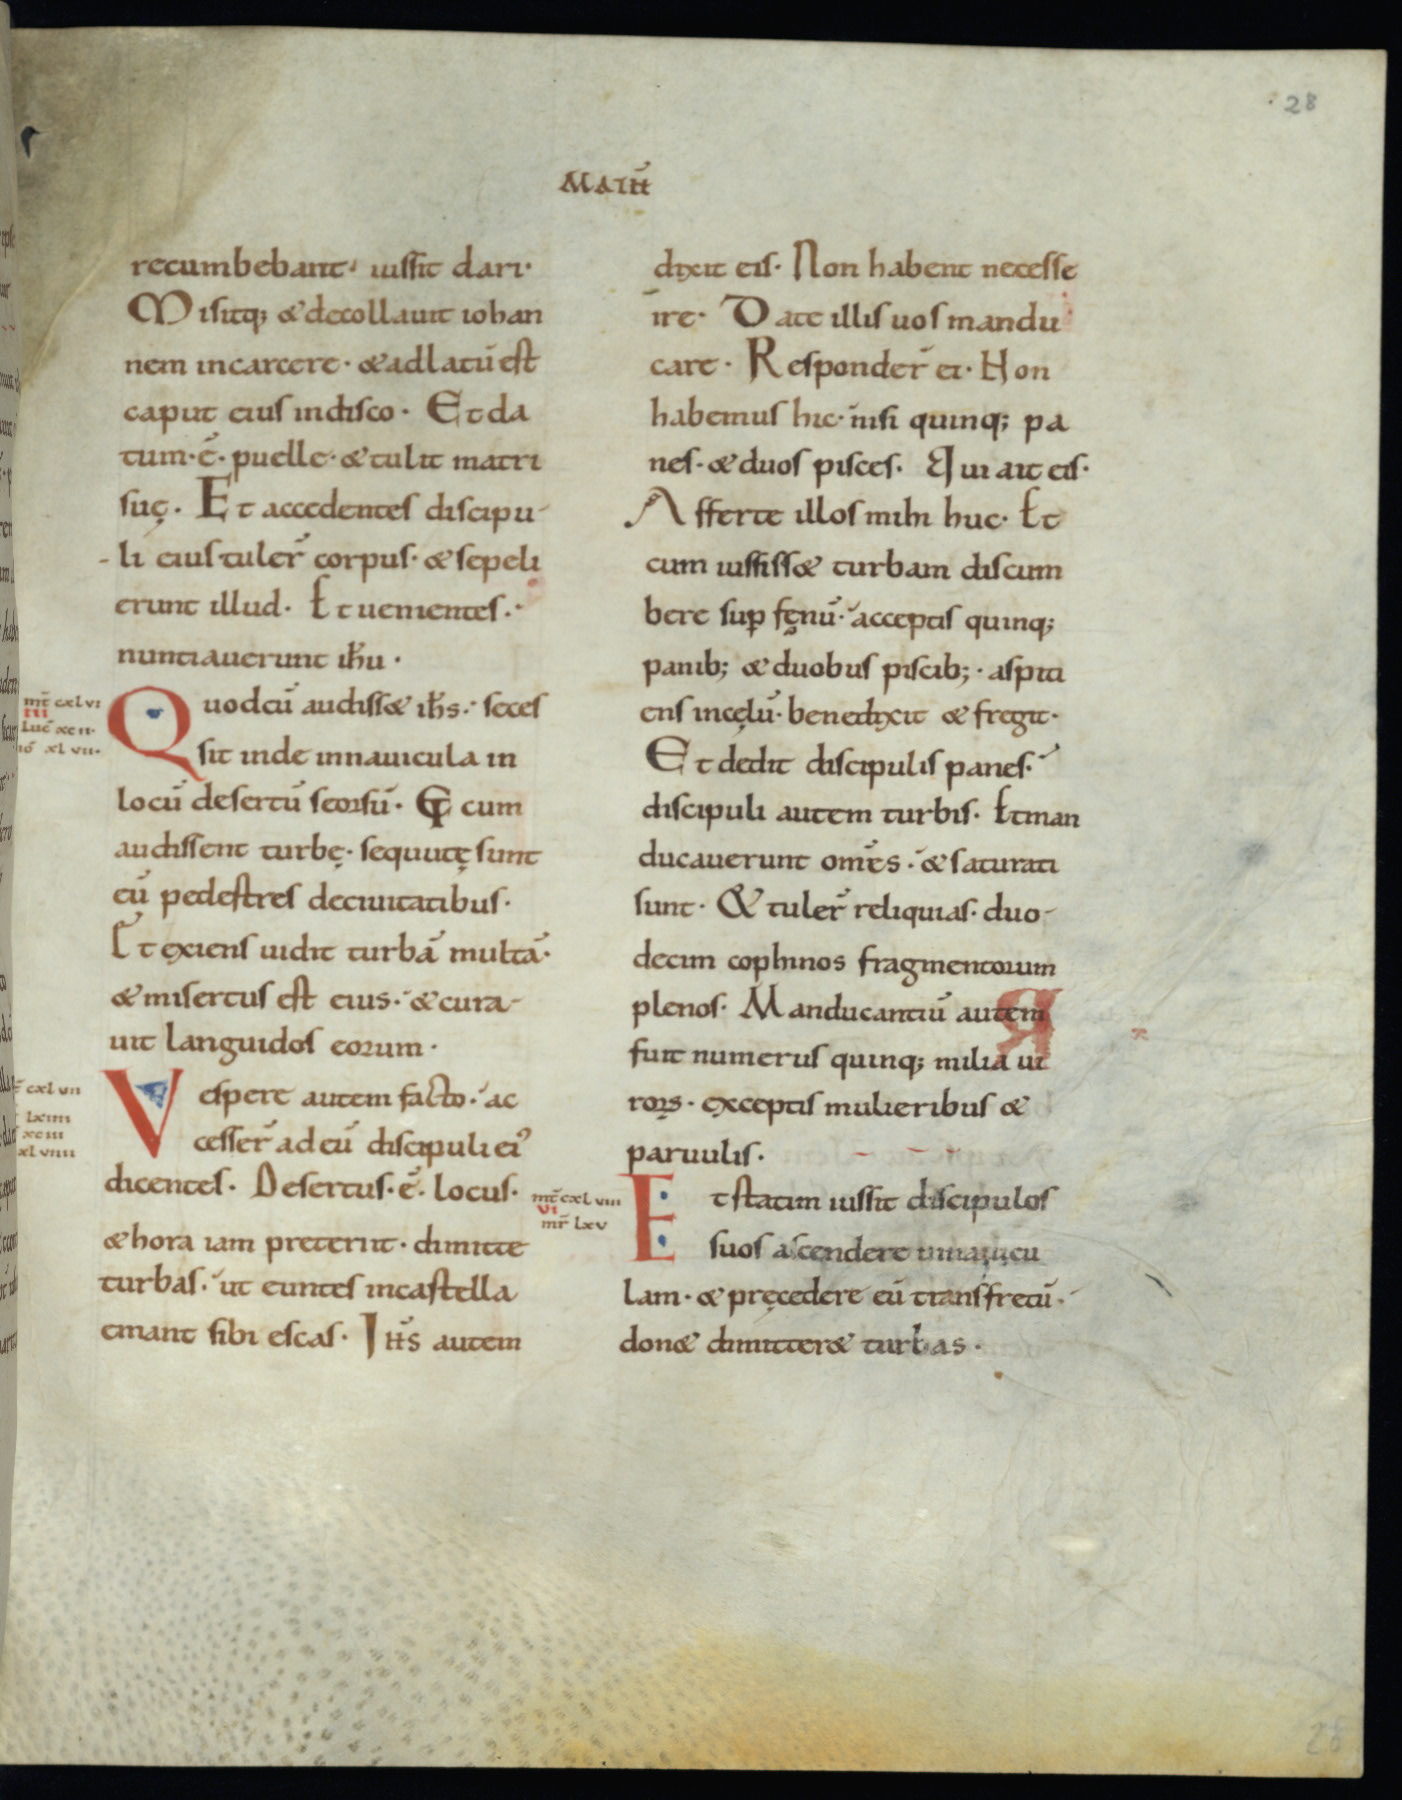 28
MATH̄
recumbebant· iussit dari·
Misitq; & decollauit iohan
nem in carcere· & adlatū est
caput eius in disco· Et da
tum·ē· puelle· & tulit matri
suę· Et accedentes discipu-
li eius tuler̄ corpus· & sepeli
erunt illud· Et uenientes·
nuntiauerunt ihū·
mt̄ cxlvi
iii
Luc̄ xcii·
iō xlvii·
Quod cū audiss& ihs· seces
sit inde in nauicula in
locū desertū seorsū· Et cum
audissent turbę· secutę sunt
eū pedestres de ciuitatibus·
Et exiens uidit turbā multā·
& misertus est eius· & cura-
uit languidos eorum·
cxlvii
lxiiii
xciii
xlviiii
Vespere autem facto· ac
cesser̄ ad eū discipuli ei'
dicentes· Desertus·ē· locus·
& hora iam preteriit· dimitte
turbas· ut euntes in castella
emant sibi escas· Ihs autem
dixit eis· Non habent necesse
ire· Date illis uos mandu
care· Responder̄ ei· Non
habemus hic· nisi quinq; pa
nes· & duos pisces· Qui ait eis·
Afferte illos mihi huc· Et
cum iussiss& turbam discum
bere sup fęnū· acceptis quinq;
panib; & duobus piscib;· aspici
ens in cęlū· benedixit & fregit·
Et dedit discipulis panes·
discipuli autem turbis· Et man
ducauerunt om̄es· & saturati
sunt· & tuler̄ reliquias· duo-
decim cophinos fragmentorum
plenos· Manducantiū autem
fuit numerus quinq; milia ui
rorū· exceptis mulieribus &
paruulis·
mt̄ cxlviii
vi
mr̄ lxv
Et statim iussit discipulos
suos ascendere in nauicu
lam· & pręcedere eū trans fretū·
don& dimitter& turbas·
28